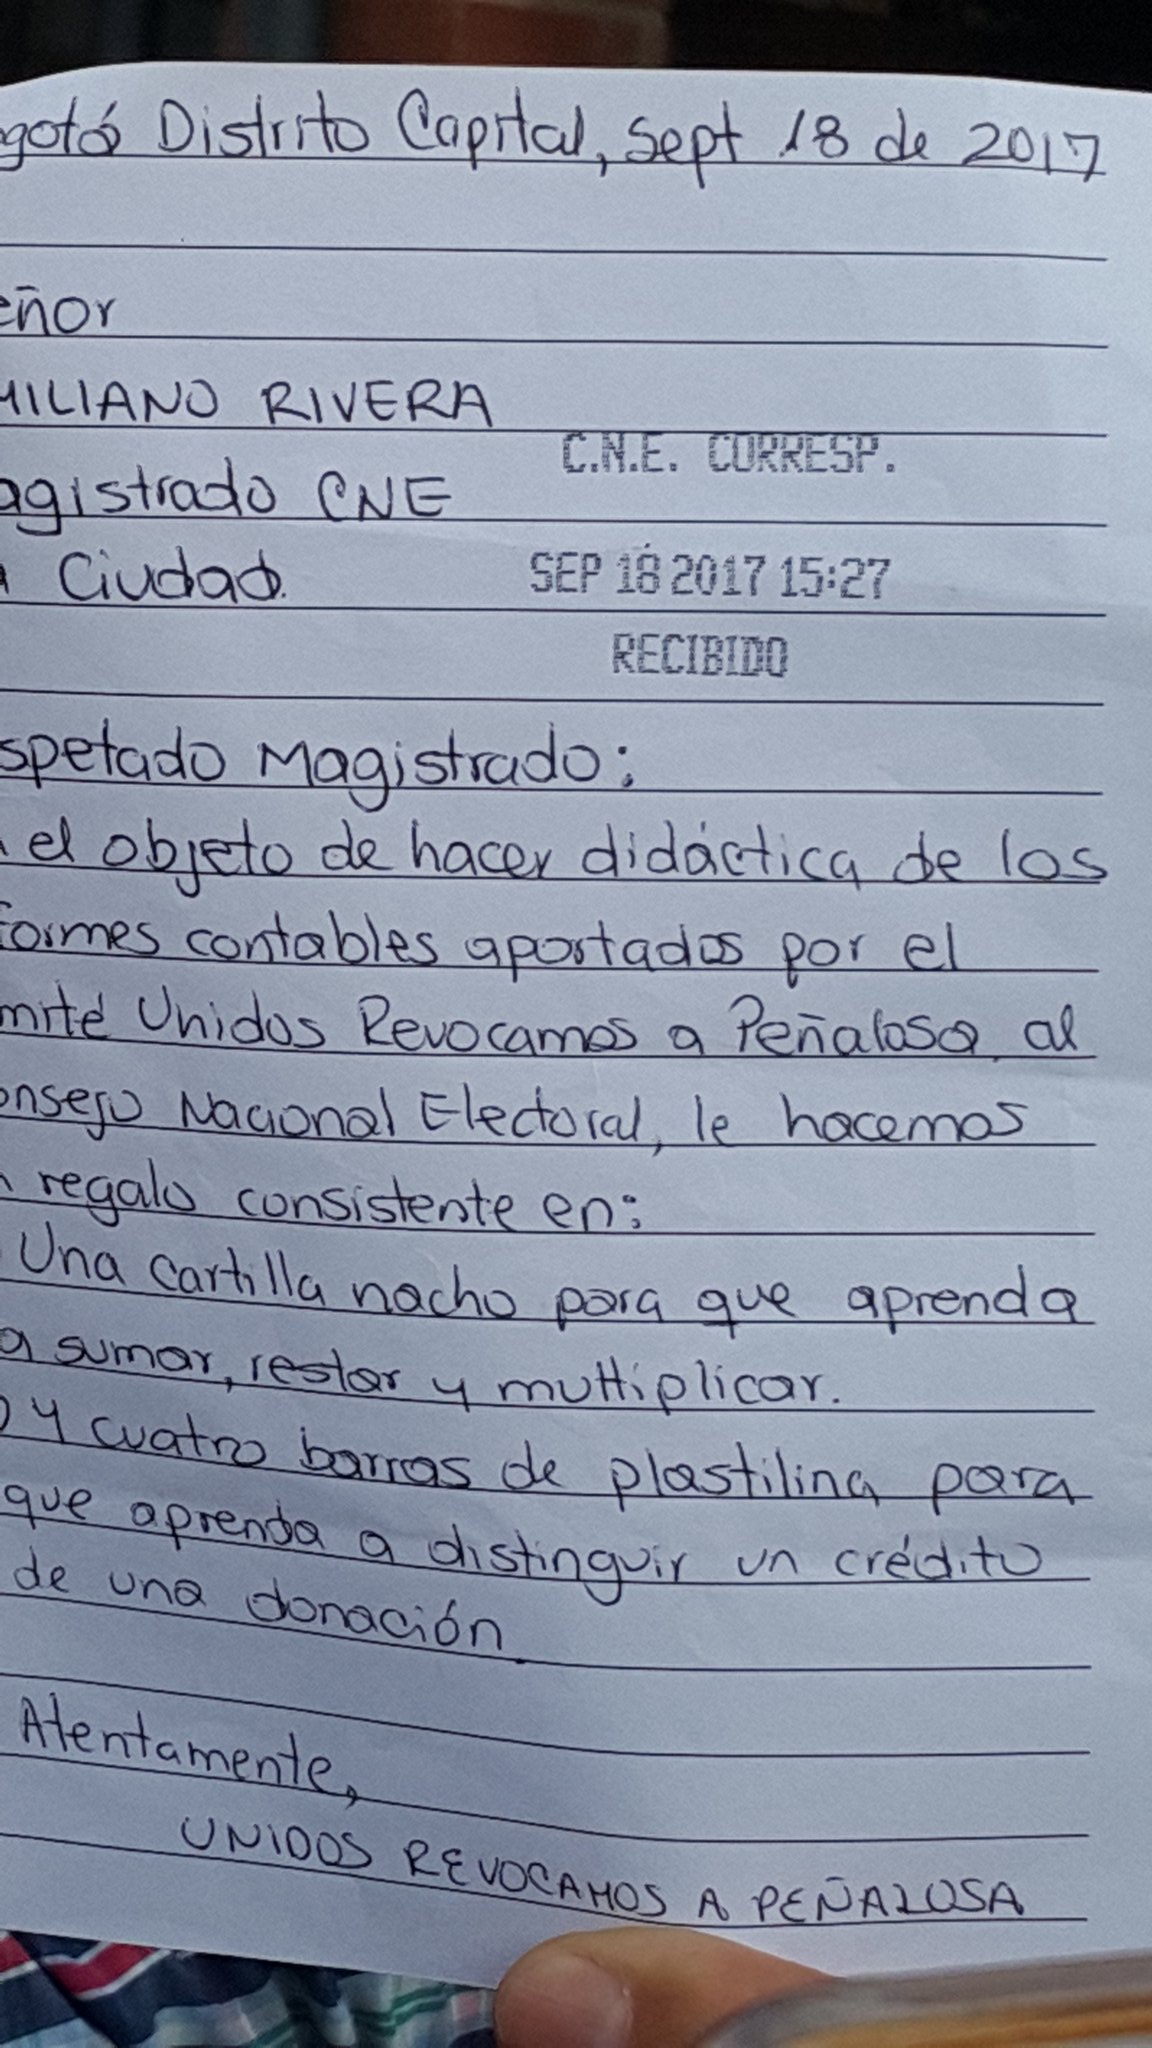 gotá Distrito Capital, Sept 18 de 2017
eñor
MILIANO RIVERA
C.N.E. CORRESP.
agistrado CNE
Ciudad.
SEP 18 2017 15:27
RECIBIDO
spetado Magistrado:
el objeto de hacer didáctica de los
formes contables aportados por el
mité Unidos Revocamos a Peñalosa al
onsejo Nacional Electoral, le hacemos
regalo consistente en:
Una cartilla nacho para que aprenda
a sumar, restar y multiplicar.
y cuatro barras de plastilina para
que aprenda a distinguir un crédito
de una donación.
Atentamente,
UNIDOS REVOCAMOS A PEÑALOSA